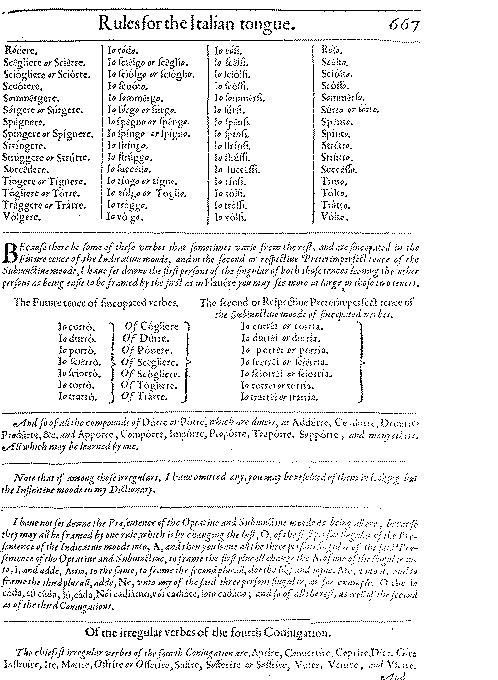 Rules for the Italian tongue. 667
Ródere. Io ródo. Io rósi. Róso.
Scégliere or Sciérre. Io scélgo or scéglio. Io scélsi. Scélto.
Sciógliere or Sciórre. Io sciólgo or scióglio. Io sciólsi. Sciólto.
Scuótere. Io scuóto. Io scóssi. Scósso.
Sommérgere. Io sommérgo. Io sommérsi. Sommérso.
Sórgere or Súrgere. Io sórgo or súrgo. Io súrsi. Súrto or sórto.
Spégnere. Io spégno or spéngo. Io spénsi. Spénto.
Spíngere or Spígnere. Io spíngo or spígno. Io spínsi. Spínto.
Stríngere. Io stríngo. Io strínsi. Strétto.
Strúggere or Strúrre. Io strúggo. Io strússi. Strútto.
Succédere. Io succédo. Io succéssi. Succésso.
Tíngere or Tígnere. Io tíngo or tígno. Io tínsi. Tínto.
Tógliere or Tórre. Io tólgo or Tóglio. Io tólsi. Tólto.
Trággere or Trárre. Io trággo. Io trássi. Trátto.
Vólgere. Io vólgo. Io vólsi. Vólto.
BEcause there be some of these verbes that sometimes varie from the rest, and are sincopated in the
Future tence of the Indicative moode, and in the second or respective Preterimperfect tence of the
Subiunctive moode, I have set downe the first persons of the singular of both those tences leaving the other
persons as being easie to be framed by the first as in you may see more at large in those two tences.
The Future tence of sincopated verbes. The second or Respective Preterimperfect tence of
the Subiunctive moode of sincopated verbes.
Io corrò. Of Cógliere Io correi or corria.
Io durrò. Of Dúrre. Io durrei or durria.
Io porrò. Of Pónere. Io porrei or porria.
Io scerrò. Of Scégliere. Io scerrei or sceria.
Io sciorrò. Of Sciógliere. Io sciorrei or sciorria.
Io torrò. Of Tógliere. Io torrei or torria.
Io trarrò. Of Trárre. Io trarrei or trarria.
And so of all the compounds of Dúrre or Pórre, which are divers, as Addúrre,
Prodúrre, &c. and Appórre, Compórre, Impórre, Propórre, Suppórre, and many others.
All which may be learned by use.
Note that if among those irregulars, I have omitted any, you may be resolved of them in looking but
the Infinitive moode in my Dictionary.
I have not set downe the Presentence of the Optative and Subiunctive moode as being all one, because
they may all be framed by one rule, which is by changing the last, O, of the first person singular of the Pre-
sentence of the Indicative moode into, A, and then you have all the three persons singular of the said Pre-
sentence of the Optative and Subiunctive, to frame the first plurall change the
to, I, and adde, Amo, to the same, to frame the second plurall,
frame the third plurall, adde, No, unto any of the said three persons singular, as for example. O che io
cáda, tú cáda, lui cáda, Nói cadiámo, vói cadiáte, loro cádano; and so of all the rest, as well of the second
as of the third Coniugations.
Of the irregular verbes of the fourth Coniugation.
The chiefest irregular verbes of the fourth Coniugation are, Apríre, Convertíre, Copríre, Díre,
Instruíre, Íre, Moríre, Offríre or Offeríre, Salíre, Sofferíre or Soffríre, Veníre, and Vscíre.
And